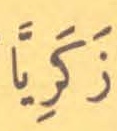 زَكَرِيَّا